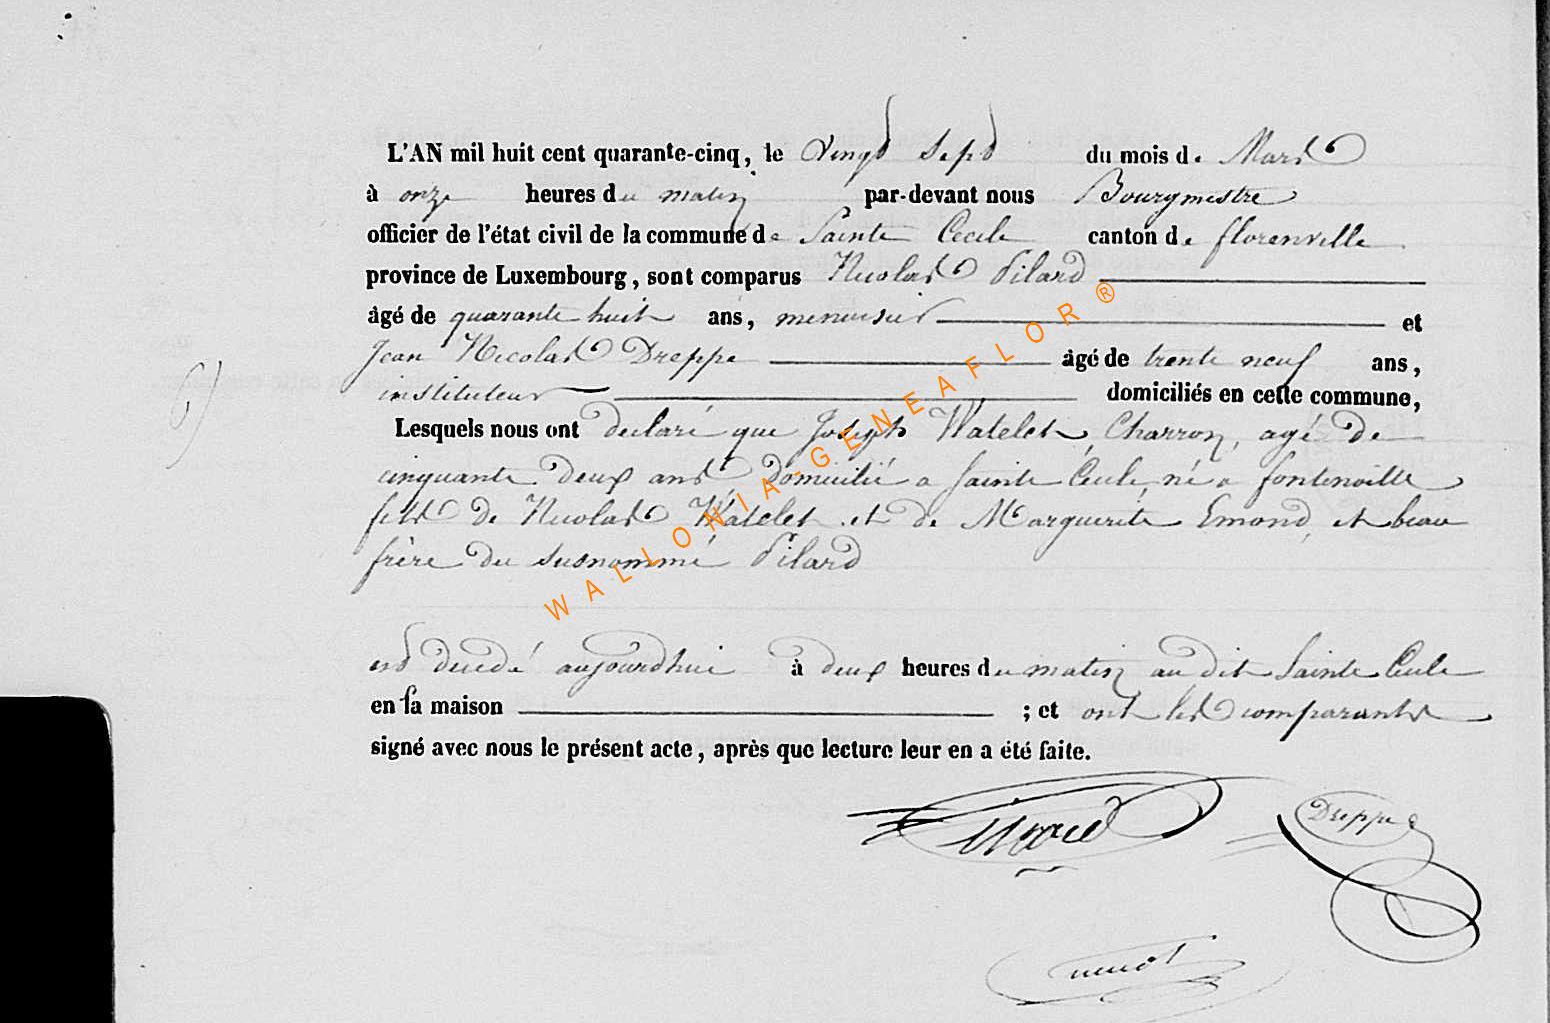 L'AN mil huit cent quarante-cinq, le vingt sept du mois de Mars
à onze heures du matin par-devant nous Bourgmestre
officier de l'état civil de la commune de Sainte Cecile canton de florenville
province de Luxembourg, sont comparus Nicolas Pilard
âgé de quarante huit ans, menuisier et
Jean Nicolas Dreppe âgé de trente neuf ans,
instituteur domiciliés en cette commune,
Lesquels nous ont declaré que Joseph Watelet, Charron, agé de
cinquante deux ans domicilié a Sainte Cecile né a fontenoille
fils de Nicolas Watelet et de Marguerite Emond, et beau
frère du susnommé Pilard
est decedé aujourdhui à deux heures du matin au dit Sainte Cecile
en sa maison ; et ont les comparants
signé avec nous le présent acte, après que lecture leur en a été faite.
Dreppe
WALLONIA-GENEAFLOR ®